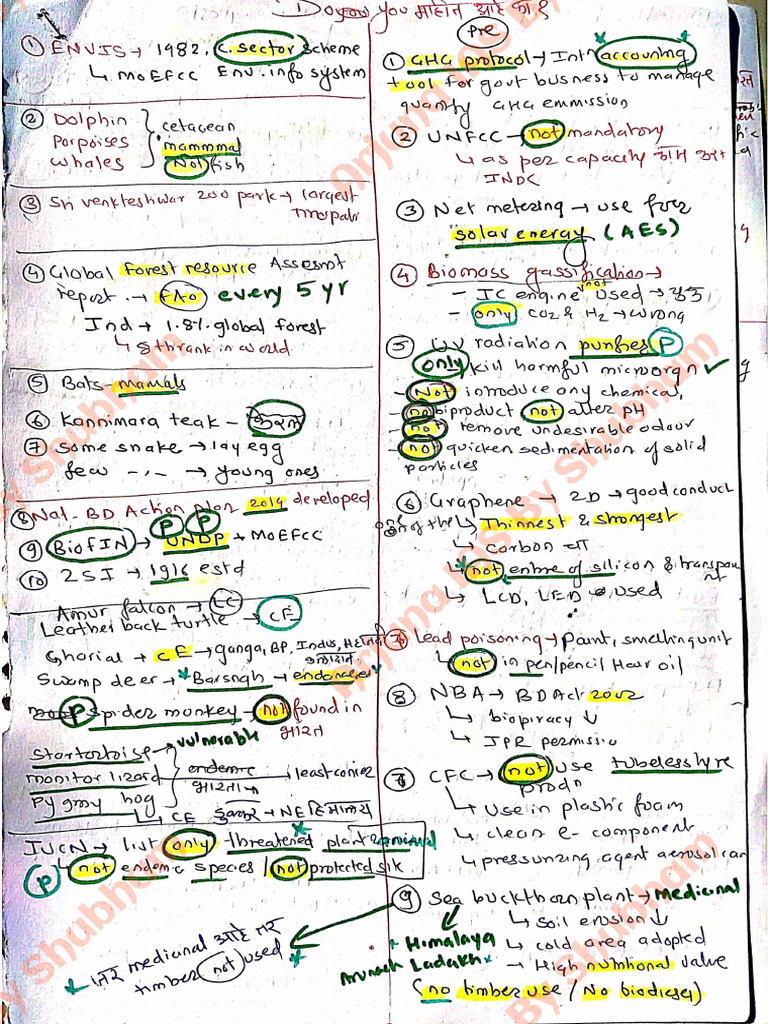 Do you you माहीत आहे का ?
① ENVIS → 1982. C. sector scheme
↳ MoEFCC Env. info system
② Dolphin
Porpoises
Whales
cetacean
mammmal
Not fish
③ Sri venkteshwar zoo park → largest
④ Global forest resource Assesmt
report. → FAO every 5 yr
Ind → 1.8% global forest
↳ 8th rank in world
⑤ Bats - mamals
⑥ Kannimara teak -
⑦ some snake → lay egg
few -〃- → young ones
⑧ Nat - BD Action plan 2019 developed
⑨ BioFIN → UNDP + MoEFCC
P P
⑩ ZSI → 1916 estd
Amur falcon → LC
Leather back turtle → CE
Ghorial → CE → ganga, BP, Indus,
Swamp deer → Barsingh → endanger
P spider monkey → not found in
भारत
Startortoise → vulnerable
monitor lizard
endemic
भारत
least concer
pygmy hog
↳ CE → NE हिमालय
IUCN → list only threatened plant & animal
P ↳ not endemic species / not protected
जर medicinal आहे तर
timber not used
Pre
① GHG protocol → Intn accounting
tool for govt busness to manage
quantify GHG emmission
② UNFCC → not mandatory
↳ as per capacity काम करा
INDC
③ Net metering → use for
solar energy (AES)
④ Biomass gassification →
- IC engine not used → चुक
- only CO2 & H2 → wrong
⑤ UV radiation purifies P
only kill harmful microorgn ✓
- Not introduce any chemical,
- no biproduct not alter pH
- not remove undesirable odour
- not quicken sedimentation of solid
particles
⑥ Graphene → 2D → good conduct
one of the ↳ Thinnest & strongest
↳ carbon
↳ not entire of silicon & transpa
↳ LCD, LED used
⑦ Lead poisoning → paint, smelting unit
↳ not in pen/pencil Hair oil
⑧ NBA → BD Act 2002
↳ biopiracy ↓
↳ IPR permissio
CFC → not use tubeless tyre
prodn
↳ use in plastic foam
↳ clean e-component
↳ pressurizing agent aerosol can
⑨ Sea buckthorn plant → Medicinal
↳ Soil erosion ↓
Himalaya ↳ cold area adopted
Ladakh ↳ High nutritional value
(no timber use / No biodiesel)
Arjuna IAS By Shubham